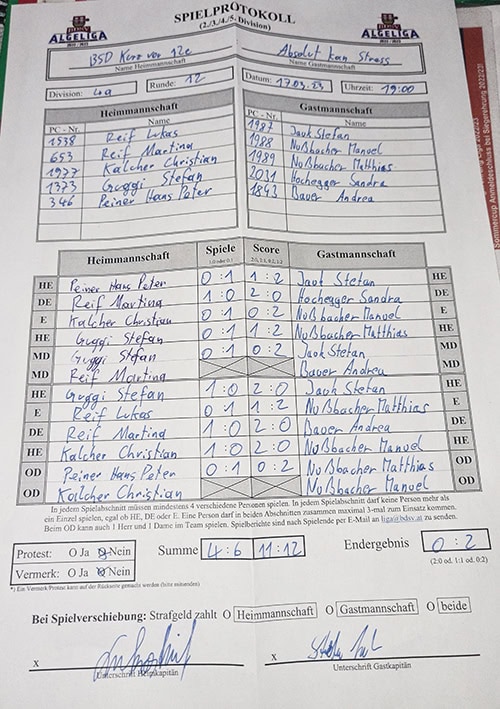 ALGELIGA
2022 / 2023
SPIELPROTOKOLL
(2./3./4./5. Division)
ALGELIGA
2022 / 2023
BSD Kurz vor 12e
Name Heimmannschaft
Absolut kan Stress
Name Gastmannschaft
Division: 4a
Runde: 12
Datum: 17.03.23
Uhrzeit: 19:00
Heimmannschaft
PC - Nr. Name
1538 Reif Lukas
653 Reif Martina
1977 Kalcher Christian
1373 Guggi Stefan
346 Peiner Hans Peter
Gastmannschaft
PC - Nr. Name
1987 Jauk Stefan
1988 Nußbacher Manuel
1989 Nußbacher Matthias
2031 Hochegger Sandra
1843 Bauer Andrea
Heimmannschaft Spiele 1:0 oder 0:1 Score 2:0, 2:1, 0:2, 1:2 Gastmannschaft
HE Peiner Hans Peter 0 : 1 1 : 2 Jauk Stefan HE
DE Reif Martina 1 : 0 2 : 0 Hochegger Sandra DE
E Kalcher Christian 0 : 1 0 : 2 Nußbacher Manuel E
HE Guggi Stefan 0 : 1 1 : 2 Nußbacher Matthias HE
MD Guggi Stefan 0 : 1 0 : 2 Jauk Stefan MD
MD Reif Martina Bauer Andrea MD
HE Guggi Stefan 1 : 0 2 : 0 Jauk Stefan HE
E Reif Lukas 0 : 1 1 : 2 Nußbacher Matthias E
DE Reif Martina 1 : 0 2 : 0 Bauer Andrea DE
HE Kalcher Christian 1 : 0 2 : 0 Nußbacher Manuel HE
OD Peiner Hans Peter 0 : 1 0 : 2 Nußbacher Matthias OD
OD Kalcher Christian Nußbacher Manuel OD
In jedem Spielabschnitt müssen mindestens 4 verschiedene Personen spielen. In jedem Spielabschnitt darf keine Person mehr als
ein Einzel spielen, egal ob HE, DE oder E. Eine Person darf in beiden Abschnitten zusammen maximal 3-mal zum Einsatz kommen.
Beim OD kann auch 1 Herr und 1 Dame im Team spielen. Spielberichte sind nach Spielende per E-Mail an liga@bdsv.at zu senden.
Protest: O Ja O Nein
Vermerk: O Ja O Nein
Summe 4 : 6 11 : 12
Endergebnis 0 : 2
(2:0 od. 1:1 od. 0:2)
*) Ein Vermerk/Protest kann auf der Rückseite gemacht werden (bitte ankreuzen)
Bei Spielverschiebung: Strafgeld zahlt O Heimmannschaft O Gastmannschaft O beide
x
Unterschrift Heimkapitän
x
Unterschrift Gastkapitän